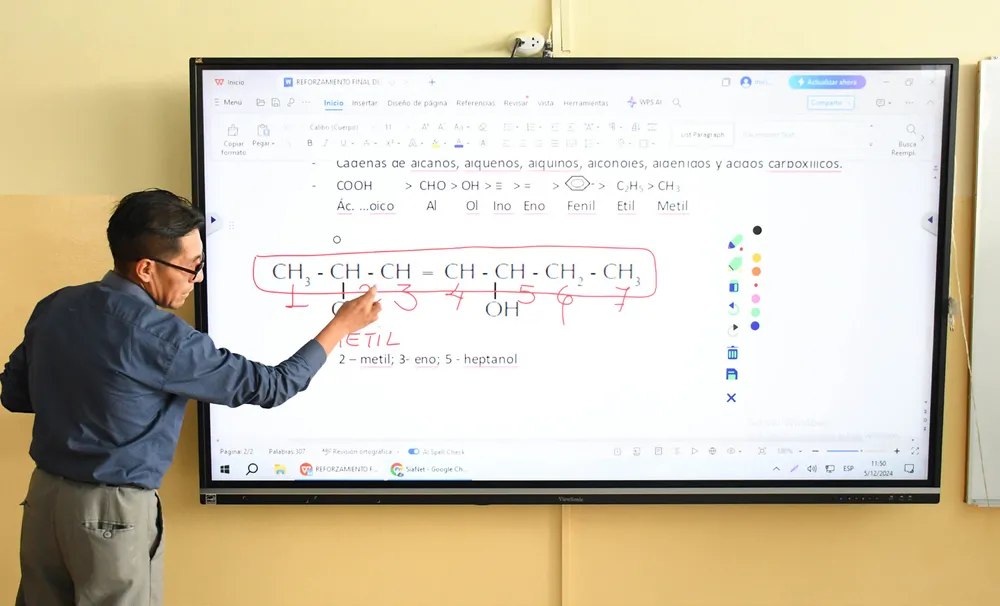 Inicio REFORZAMIENTO FINAL DE +
Actualizar ahora
Menú Inicio Insertar Diseño de página Referencias Revisar vista Herramientas WPS AI
Compartir
Copiar formato Pegar Calibri (Cuerpo) 11 List Paragraph Busca Reempl
- Cadenas de alcanos, alquenos, alquinos, alcoholes, aldehídos y ácidos carboxílicos.
- COOH > CHO > OH > ≡ > = > > C₂H₅ > CH₃
Ác. ...oico Al Ol Ino Eno Fenil Etil Metil
CH₃ - CH - CH = CH - CH - CH₂ - CH₃
1 2 3 4 5 6 7
OH
ETIL
2 – metil; 3- eno; 5 - heptanol
Página: 2/2 Palabras:307 Revisión ortográfica AI Spell Check
REFORZAMIENTO F... SiaNet - Google Ch...
ESP
11:50
5/12/2024
ViewSonic